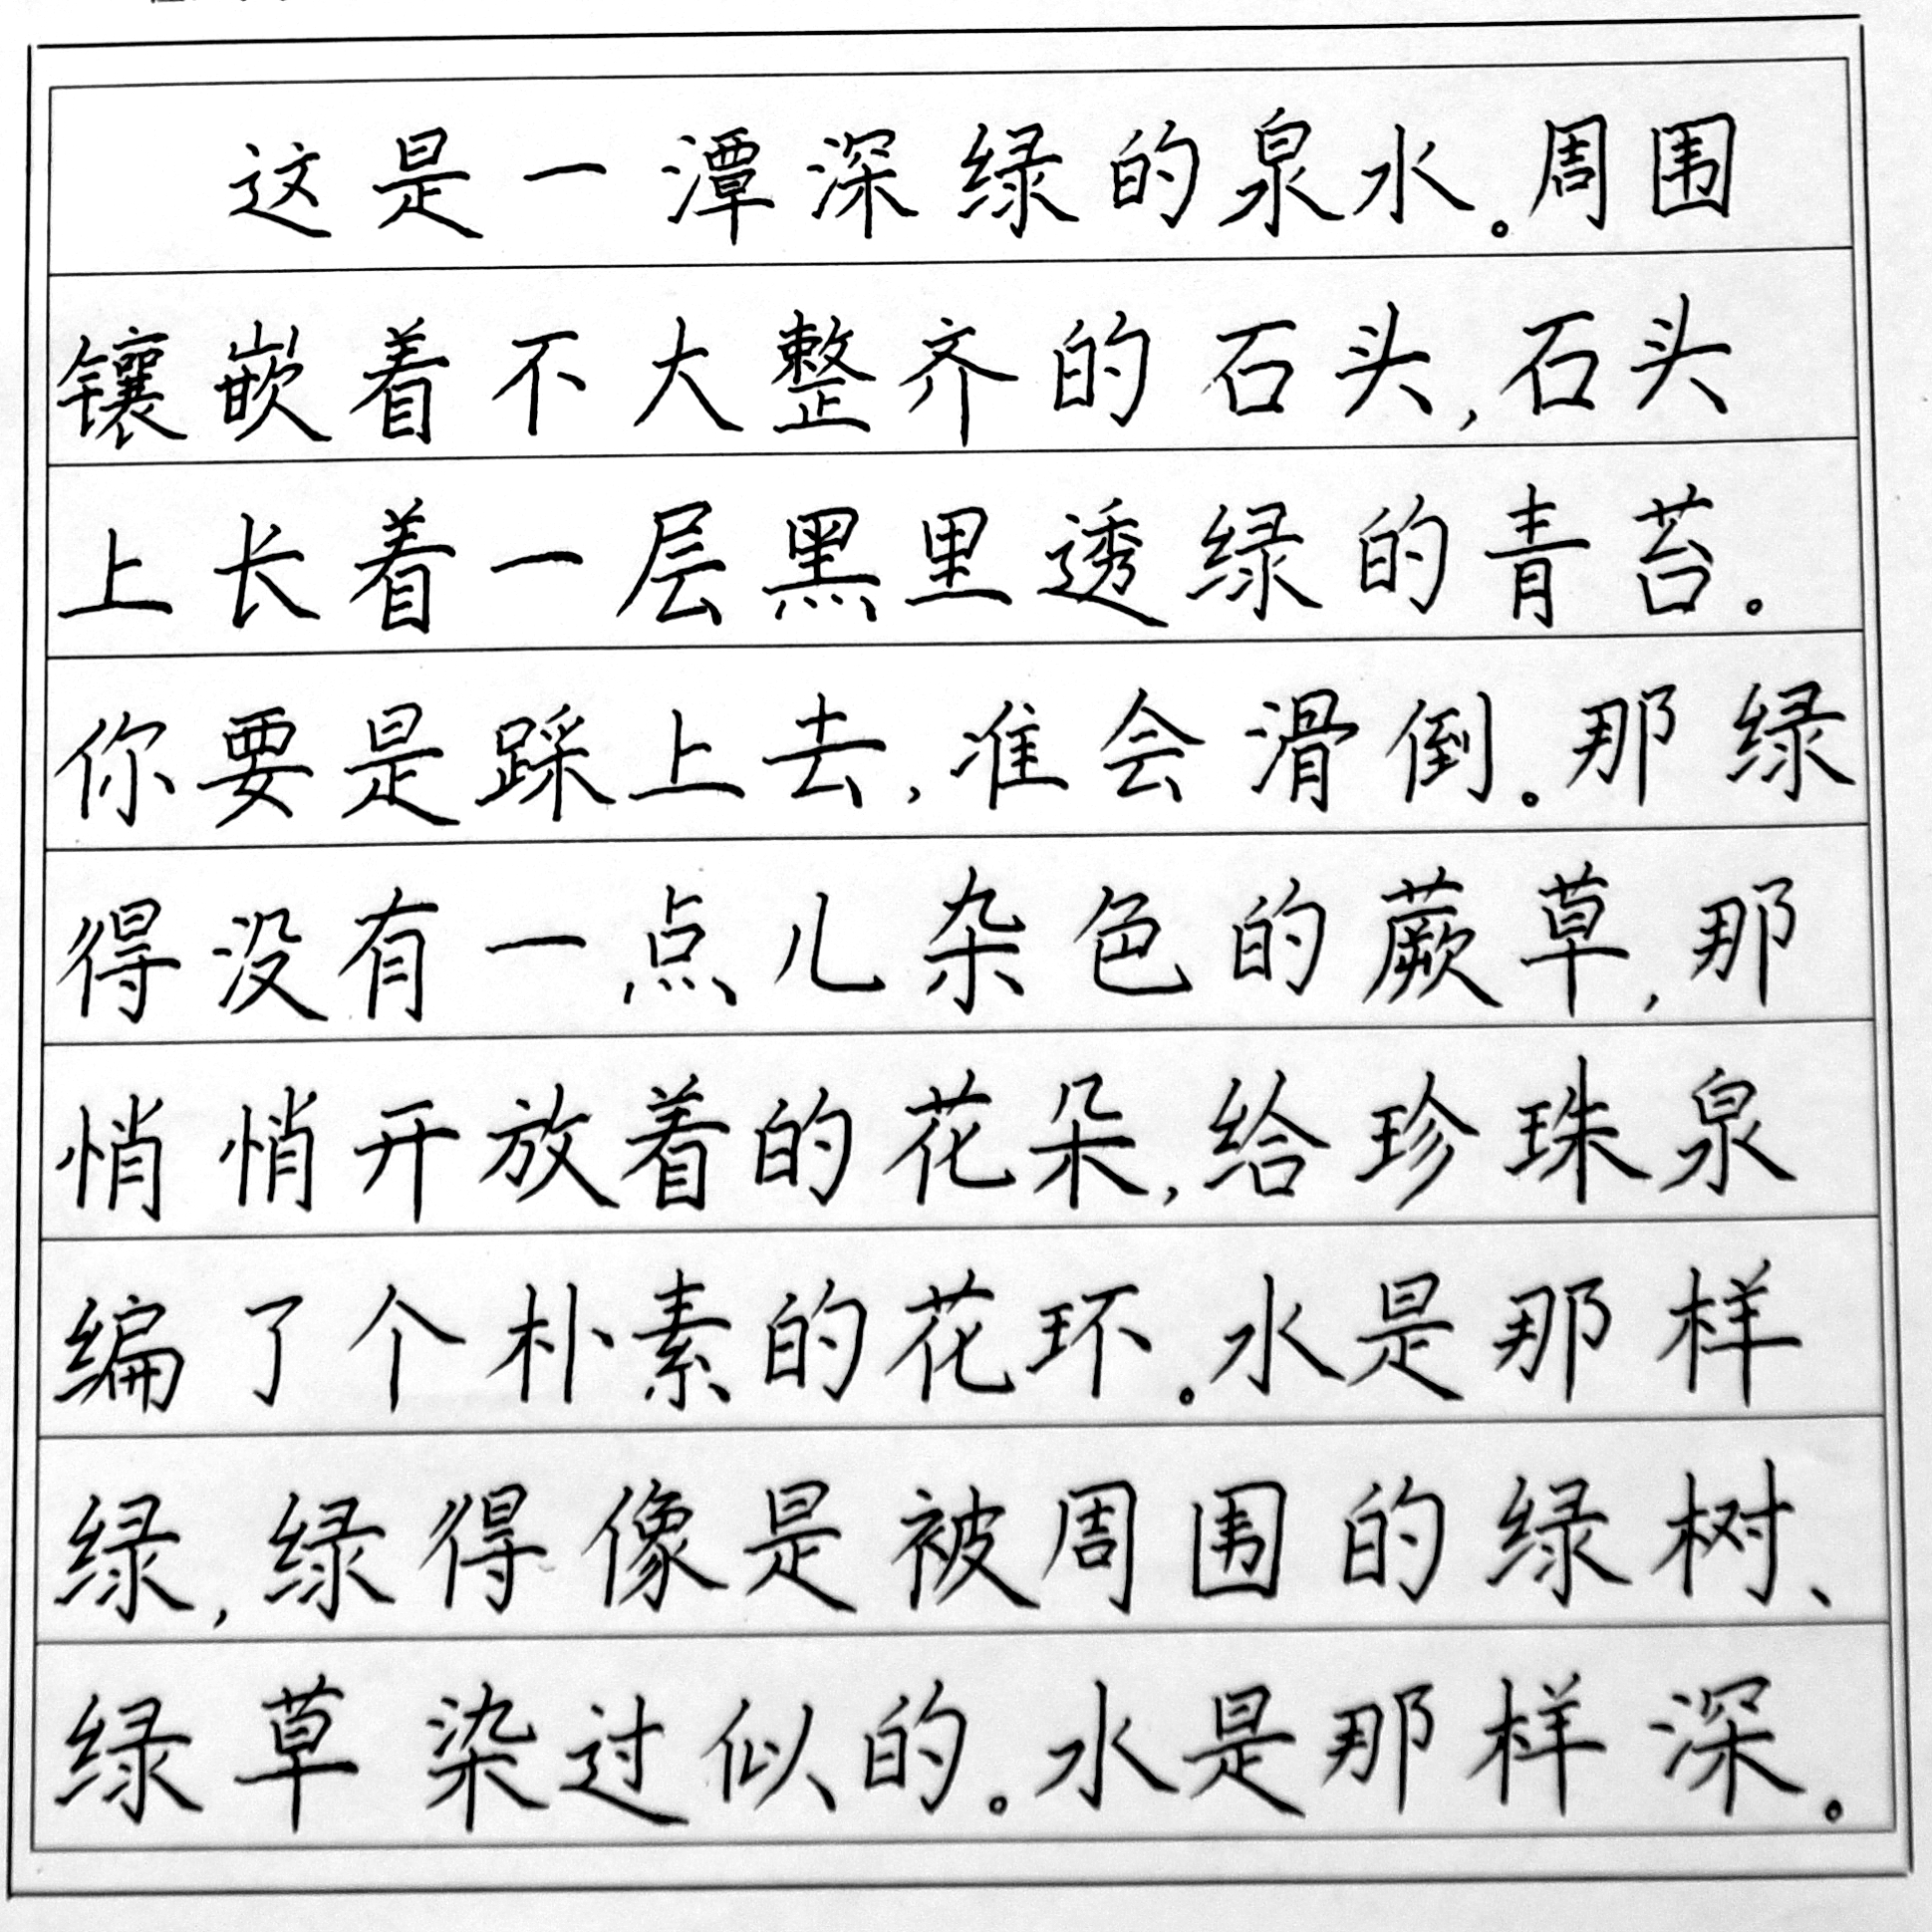 这是一潭深绿的泉水。周围
镶嵌着不大整齐的石头,石头
上长着一层黑里透绿的青苔。
你要是踩上去,准会滑倒。那绿
得没有一点儿杂色的蕨草,那
悄悄开放着的花朵,给珍珠泉
编了个朴素的花环。水是那样
绿,绿得像是被周围的绿树、
绿草染过似的。水是那样深。